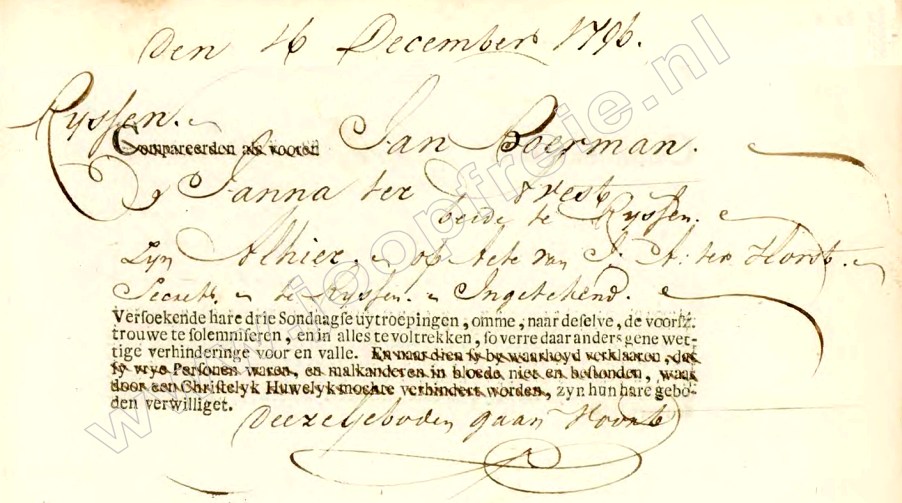 Den 16 December 1796.
Ryssen.
Compareerden als vooren Jan Boerman.
& Janna ter
beide te Ryssen.
Zyn Alhier op Acte van J: A: ter Horst.
Secrets. te Ryssen. Ingetekend.
Versoekende hare drie Sondaagse uytroepingen, omme, naar deselve, de voorsz.
trouwe te solemniseren, en in alles te voltrekken, so verre daar anders gene wet-
tige verhinderinge voor en valle. En naar dien sy by waarheyd verklaaren, dat
sy vrye Personen waren, en malkanderen in bloede niet en bestonden, waar
door een Christelyk Huwelyk mochte verhindert worden, zyn hun hare gebo-
den verwilliget.
Deeze Geboden gaan Voort
www.joopfreje.nl